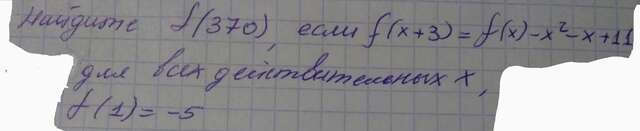 Найдите f(370), если f(x+3) = f(x) - x² - x + 11
для всех действительных x,
f(1) = -5